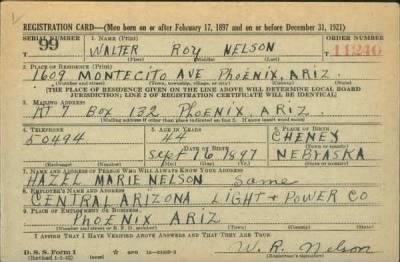 REGISTRATION CARD—(Men born on or after February 17, 1897 and on or before December 31, 1921)
SERIAL NUMBER 1. NAME (Print) ORDER NUMBER
99 WALTER ROY NELSON 11240
2. PLACE OF RESIDENCE (Print)
1609 MONTECITO AVE PHOENIX, ARIZ
[THE PLACE OF RESIDENCE GIVEN ON THE LINE ABOVE WILL DETERMINE LOCAL BOARD
JURISDICTION; LINE 2 OF REGISTRATION CERTIFICATE WILL BE IDENTICAL]
3. MAILING ADDRESS
RT 7 BOX 132 PHOENIX, ARIZ.
[Mailing address if other than place indicated on line 2. If same insert word same]
4. TELEPHONE 5. AGE IN YEARS 6. PLACE OF BIRTH
50494 44 CHENEY
DATE OF BIRTH (Town or county)
Sept 16 1897 NEBRASKA
(Exchange) (Number) (Mo.) (Day) (Yr.) (State or country)
7. NAME AND ADDRESS OF PERSON WHO WILL ALWAYS KNOW YOUR ADDRESS
HAZEL MARIE NELSON same
8. EMPLOYER'S NAME AND ADDRESS
CENTRAL ARIZONA LIGHT + POWER CO
9. PLACE OF EMPLOYMENT OR BUSINESS
PHOENIX ARIZ
(Number and street or R. F. D. number) (Town) (County) (State)
I AFFIRM THAT I HAVE VERIFIED ABOVE ANSWERS AND THAT THEY ARE TRUE.
D. S. S. Form 1 W. R. Nelson